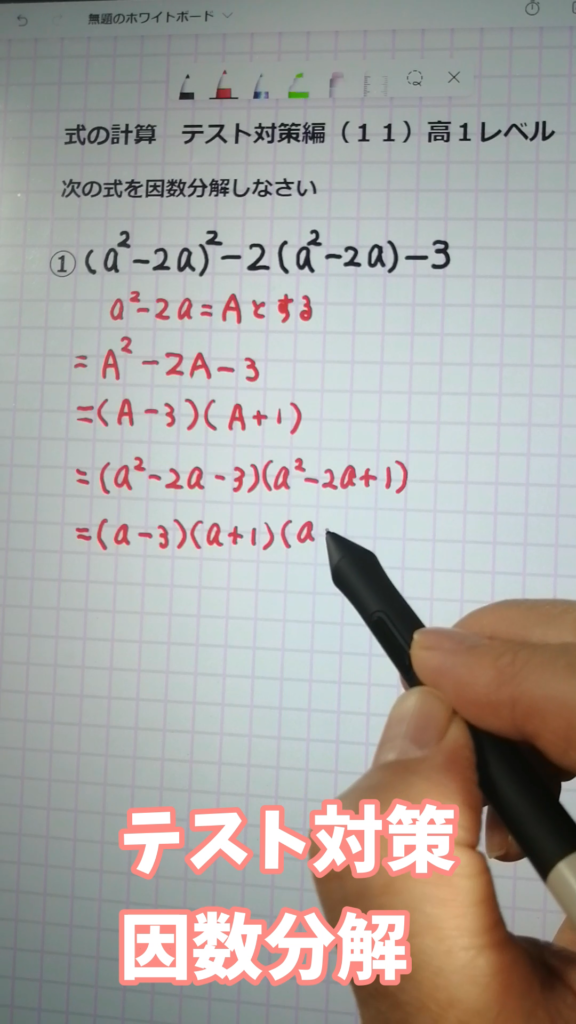 無題のホワイトボード
式の計算 テスト対策編（１１）高１レベル
次の式を因数分解しなさい
① (a²-2a)²-2(a²-2a)-3
a²-2a=Aとする
=A²-2A-3
=(A-3)(A+1)
=(a²-2a-3)(a²-2a+1)
=(a-3)(a+1)(a
テスト対策
因数分解